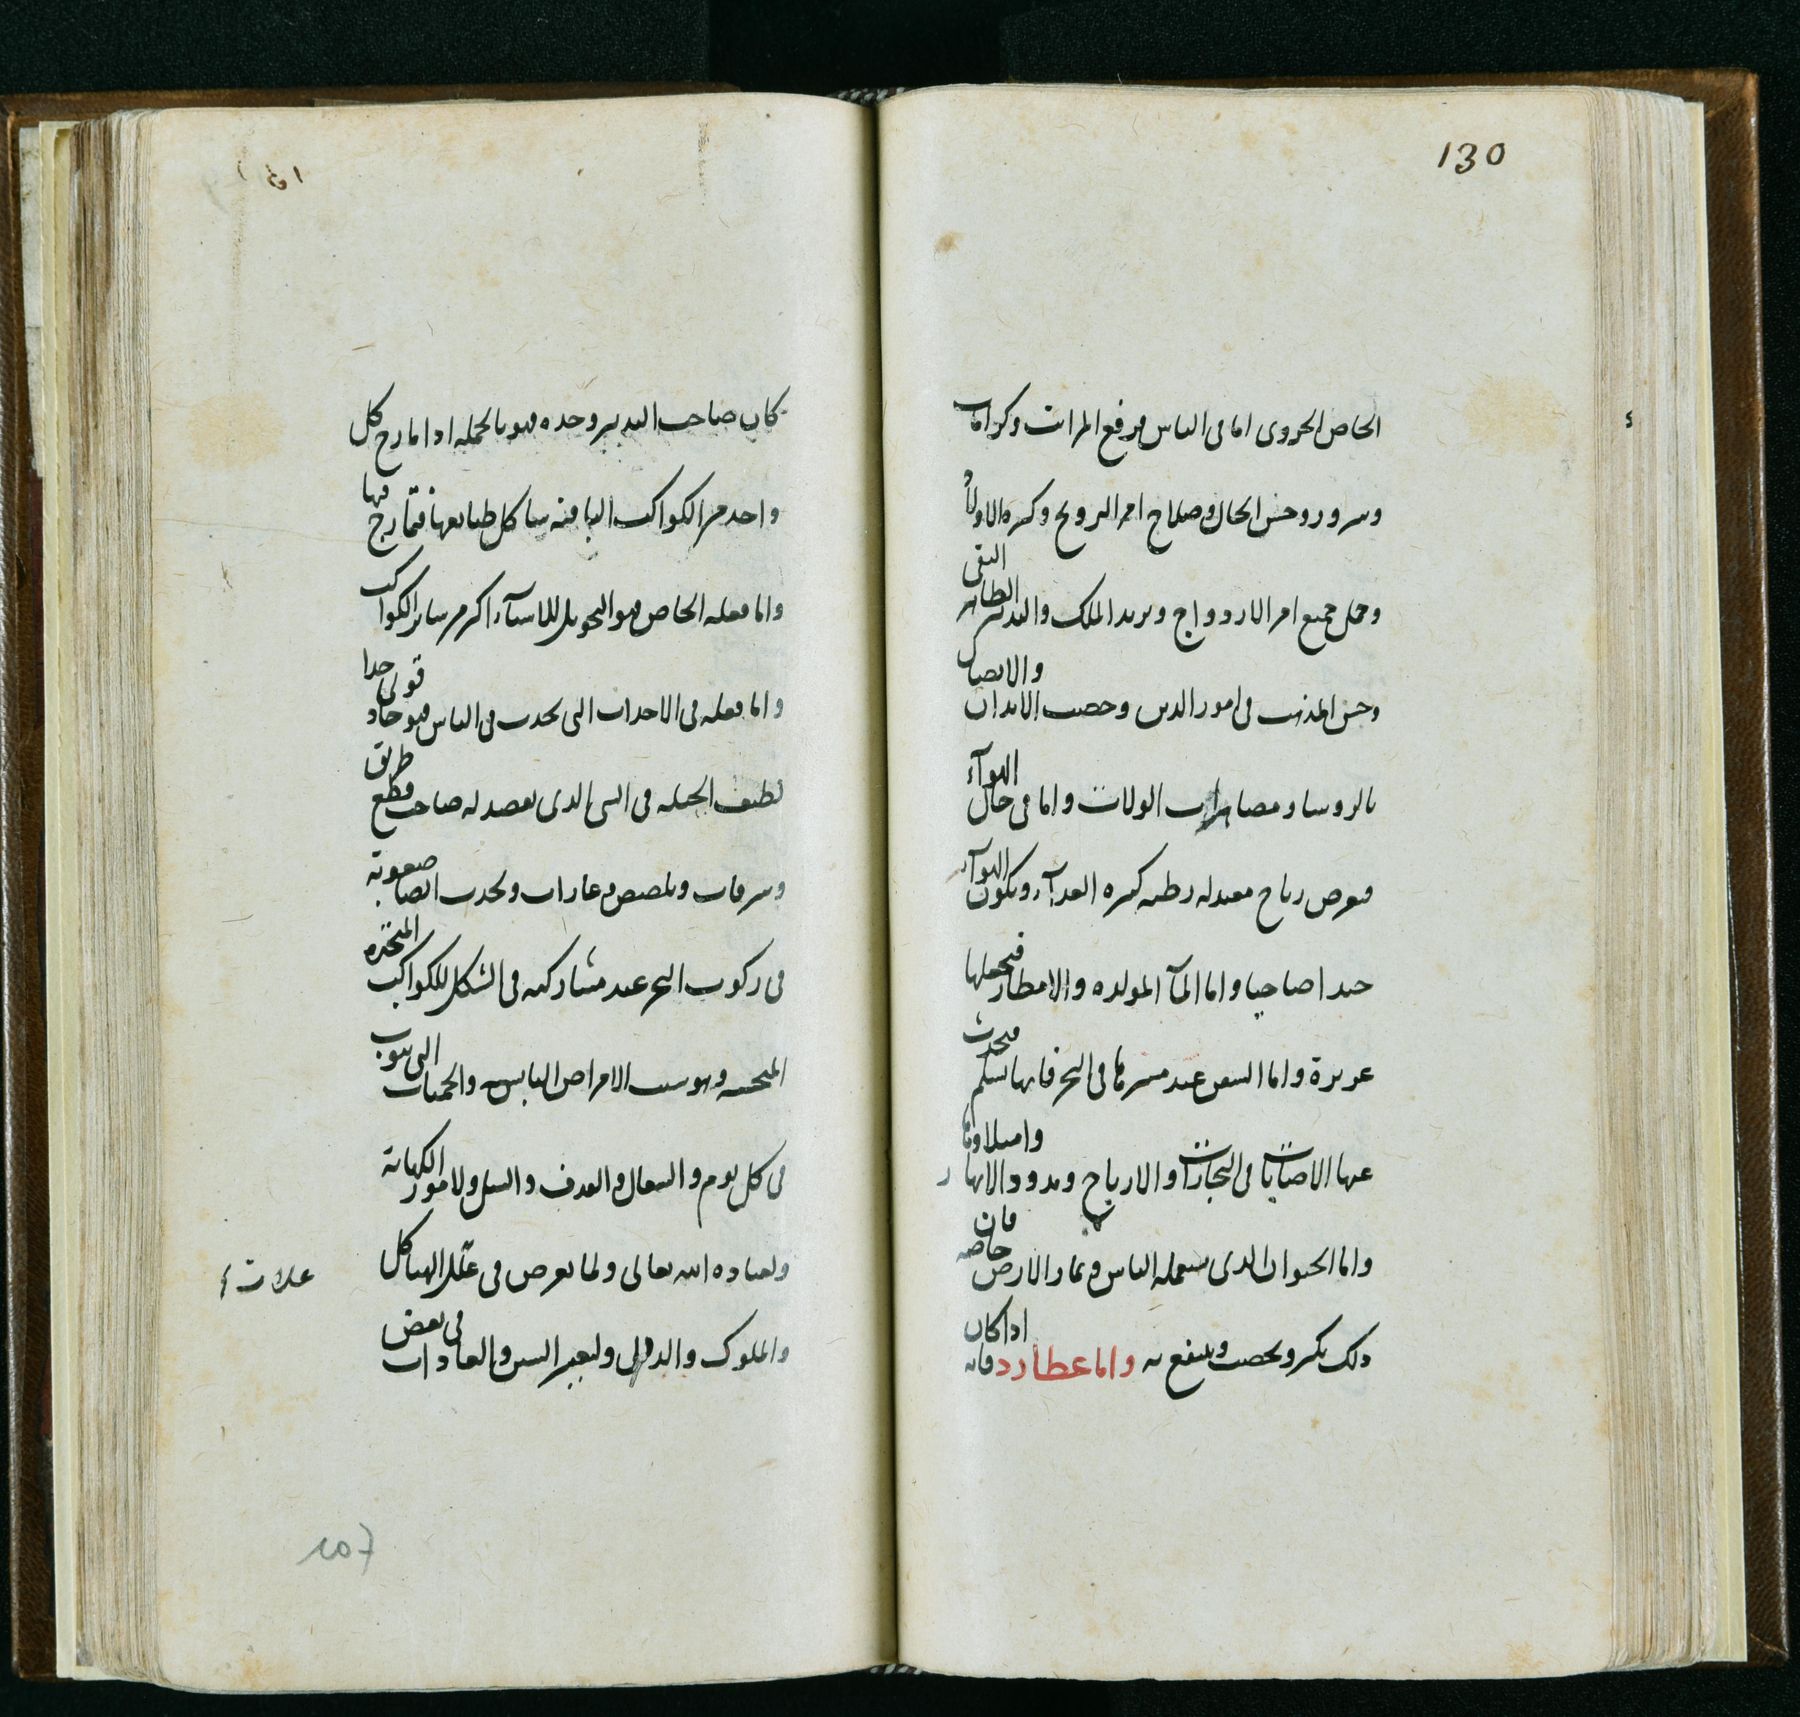 130
الخاص الجزوى اما فى الناس فرفع المراتب وكرامات
وسرور وحسن الحال وصلاح امر التزويج وكثرة الاولاد
وحمل جميع امر الازدواج وتزيد الملك والتدبير الطاهر النقى
وحسن المذهب فى امور الدين وخصب الابدان والاتصال
بالروسا ومصاهرات الولات واما فى حال الهوآء
فيعرض رياح معتدلة رطبة كثيرة الغدآء ويكون الهوآء
جيدا صاحيا واما المآء المولدة والامطار فيجعلها
غزيرة واما السفن عند مسيرها فى البحر فانها تسلم فيحدث
عنها الاصابات فى التجارات والارباح ومدود الانهار وامتلاوها
واما الحيوان الذى يستعمله الناس وثمار الارض خاصة فان
ذلك يكثر ويخصب وينتفع به واما عطارد فانه اذا كان
كان صاحب التدبير وحده فهو بالجملة اذا مازج كل
واحد من الكواكب الباقية يشاكل طبايعها فتمازج فيها
واما فعله الخاص فهو التحويل للاشيآء اكثر من ساير الكواكب
واما فعله فى الاحداث التى تحدث فى الناس فهو حاد قوى جدا
لطيف الحيلة فى الشى الذى يقصد له صاحب قطع طريق
وسرقات وتلصص وغارات ويحدث ايضا صعوبة
فى ركوب البحر عند مشاركته فى الشكل للكواكب المنحسة
المنحسة ويوسب الامراض اليابس والحميات التى تنوب
فى كل يوم والسعال والقذف والسل ولامور الكهانة
ولعبادة الله تعالى ولما يعرض فى غلل الهياكل
غلات
والملوك والدوالى ولتغيير السنن والعادات فى بعض
107